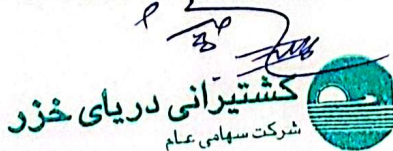 کشتیرانی دریای خزر
شرکت سهامی عام